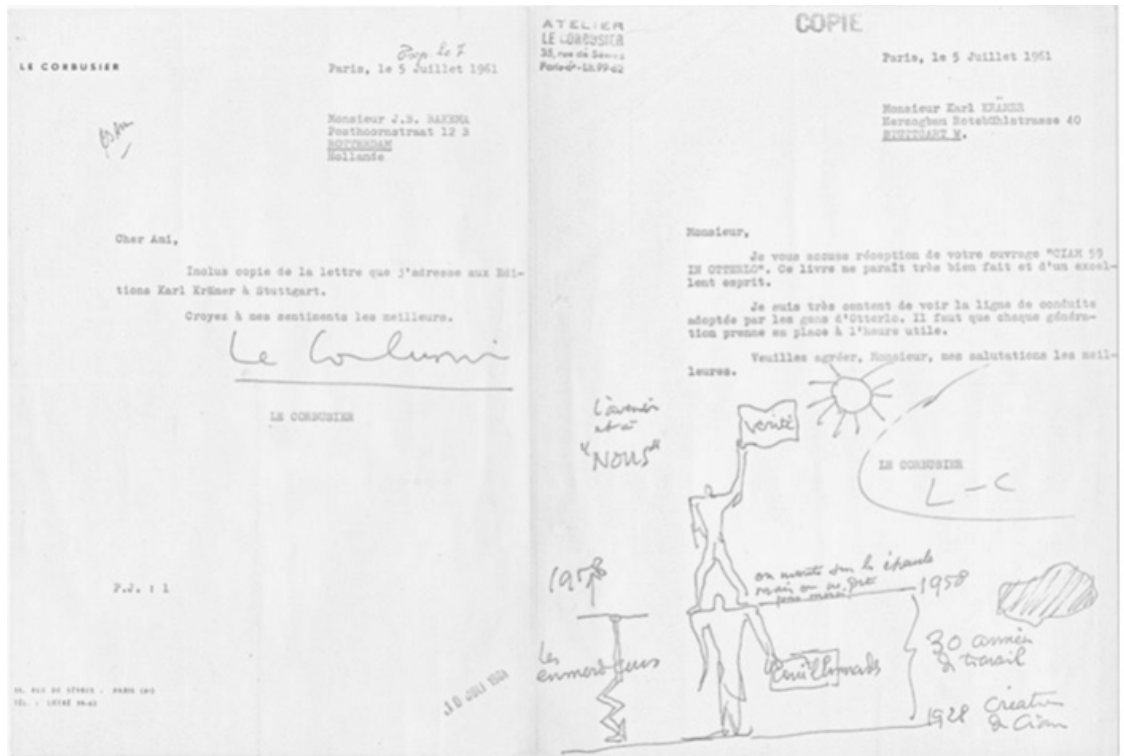 LE CORBUSIER
Paris, le 5 Juillet 1961
Monsieur J.B. BAKEMA
Posthoornstraat 12 B
ROTTERDAM
Hollande
Cher Ami,
Inclus copie de la lettre que j'adresse aux Edi-
tions Karl Krämer à Stuttgart.
Croyez à mes sentiments les meilleurs.
Le Corbusier
LE CORBUSIER
P.J. : 1
35, RUE DE SÈVRES - PARIS (6e)
TÉL. : LITTRÉ 99-62
ATELIER
LE CORBUSIER
35, rue de Sèvres
COPIE
Paris, le 5 Juillet 1961
Monsieur Karl KRÄMER
Rotebühlstrasse 40
STUTTGART W.
Monsieur,
Je vous accuse réception de votre ouvrage "CIAM 59
IN OTTERLO". Ce livre me paraît très bien fait et d'un excel-
lent esprit.
Je suis très content de voir la ligne de conduite
adoptée par les gens d'Otterlo. Il faut que chaque généra-
tion prenne sa place à l'heure utile.
Veuillez agréer, Monsieur, mes salutations les meil-
leures.
LE CORBUSIER
L-C
l'avenir
est à
"NOUS"
vérité
on monte sur les épaules
mais on ne dit
pas merci
1958
1958
les
emmerdeurs
30 années
de travail
1928 création
de Ciam